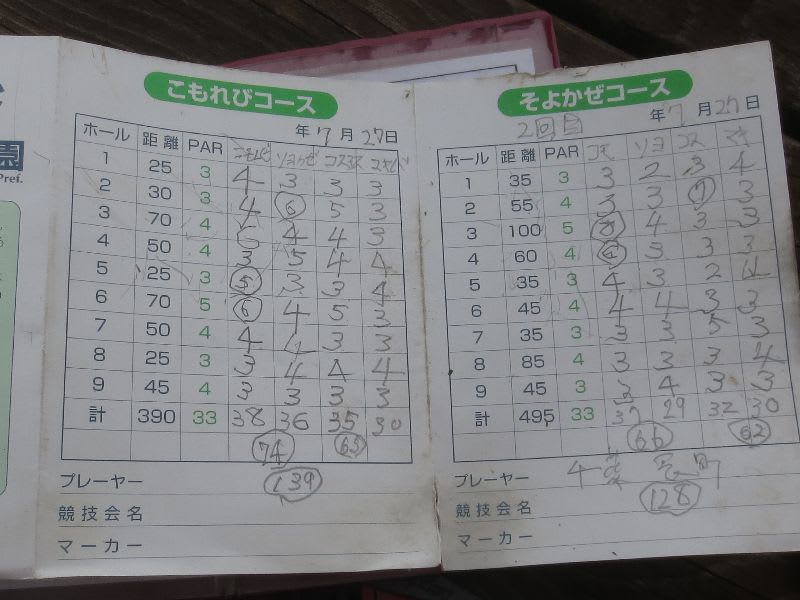 票
Pref.
こもれびコース
年 7 月 27日
ホール 距離 PAR コモレビ ソヨカゼ コスモス
1 25 3 4 3 3 3
2 30 3 4 6 5 3
3 70 4 5 4 4 3
4 50 4 3 5 4 4
5 25 3 5 3 3 4
6 70 5 6 4 5 3
7 50 4 4 4 3 3
8 25 3 3 4 4 4
9 45 4 3 3 3 3
計 390 33 38 36 35 30
74 65
139
プレーヤー
競技会名
マーカー
そよかぜコース
2回目 年 7 月 27日
ホール 距離 PAR コモ ソヨ コス
1 35 3 3 2 3 4
2 55 4 3 3 7 3
3 100 5 4 3 3
4 60 4 3 3 3
5 35 3 4 3 2 4
6 45 4 4 4 3 3
7 35 3 3 3 5 3
8 85 4 3 3 3 4
9 45 3 3 4 3 3
計 495 33 37 29 32 30
66 62
プレーヤー 千葉
128
競技会名
マーカー